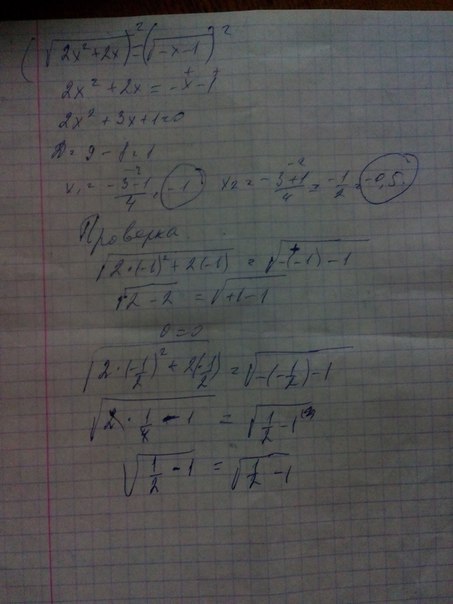 (√(2x²+2x))² = (√(-x-1))²
2x² + 2x = -x - 1
2x² + 3x + 1 = 0
D = 9 - 8 = 1
x₁ = (-3-1)/4 = -1  x₂ = (-3+1)/4 = -1/2 = -0,5
Проверка
√(2·(-1)² + 2(-1)) = √(-(-1) - 1)
√(2 - 2) = √(+1 - 1)
0 = 0
√(2·(-1/2)² + 2(-1/2)) = √(-(-1/2) - 1)
√(2·1/4 - 1) = √(1/2 - 1)
√(1/2 - 1) = √(1/2 - 1)